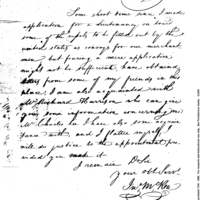 Some short time since I made
application for a Lieutenancy on board
some of the Ships to be fitted out by the
United States as convoys for our merchant
men, but fearing a mere application
might not be sufficient, have obtained
from some of my friends in this
place. I am also acquainted with
Mr Richard Harrison who can give
you some information concerning me
Mr Charles Lee I have also some acquain
tance with and I flatter myself I
will do justice to the appointment pro
vided you make it
I remain Dr Sir
your Obt Servt
Jno McRea